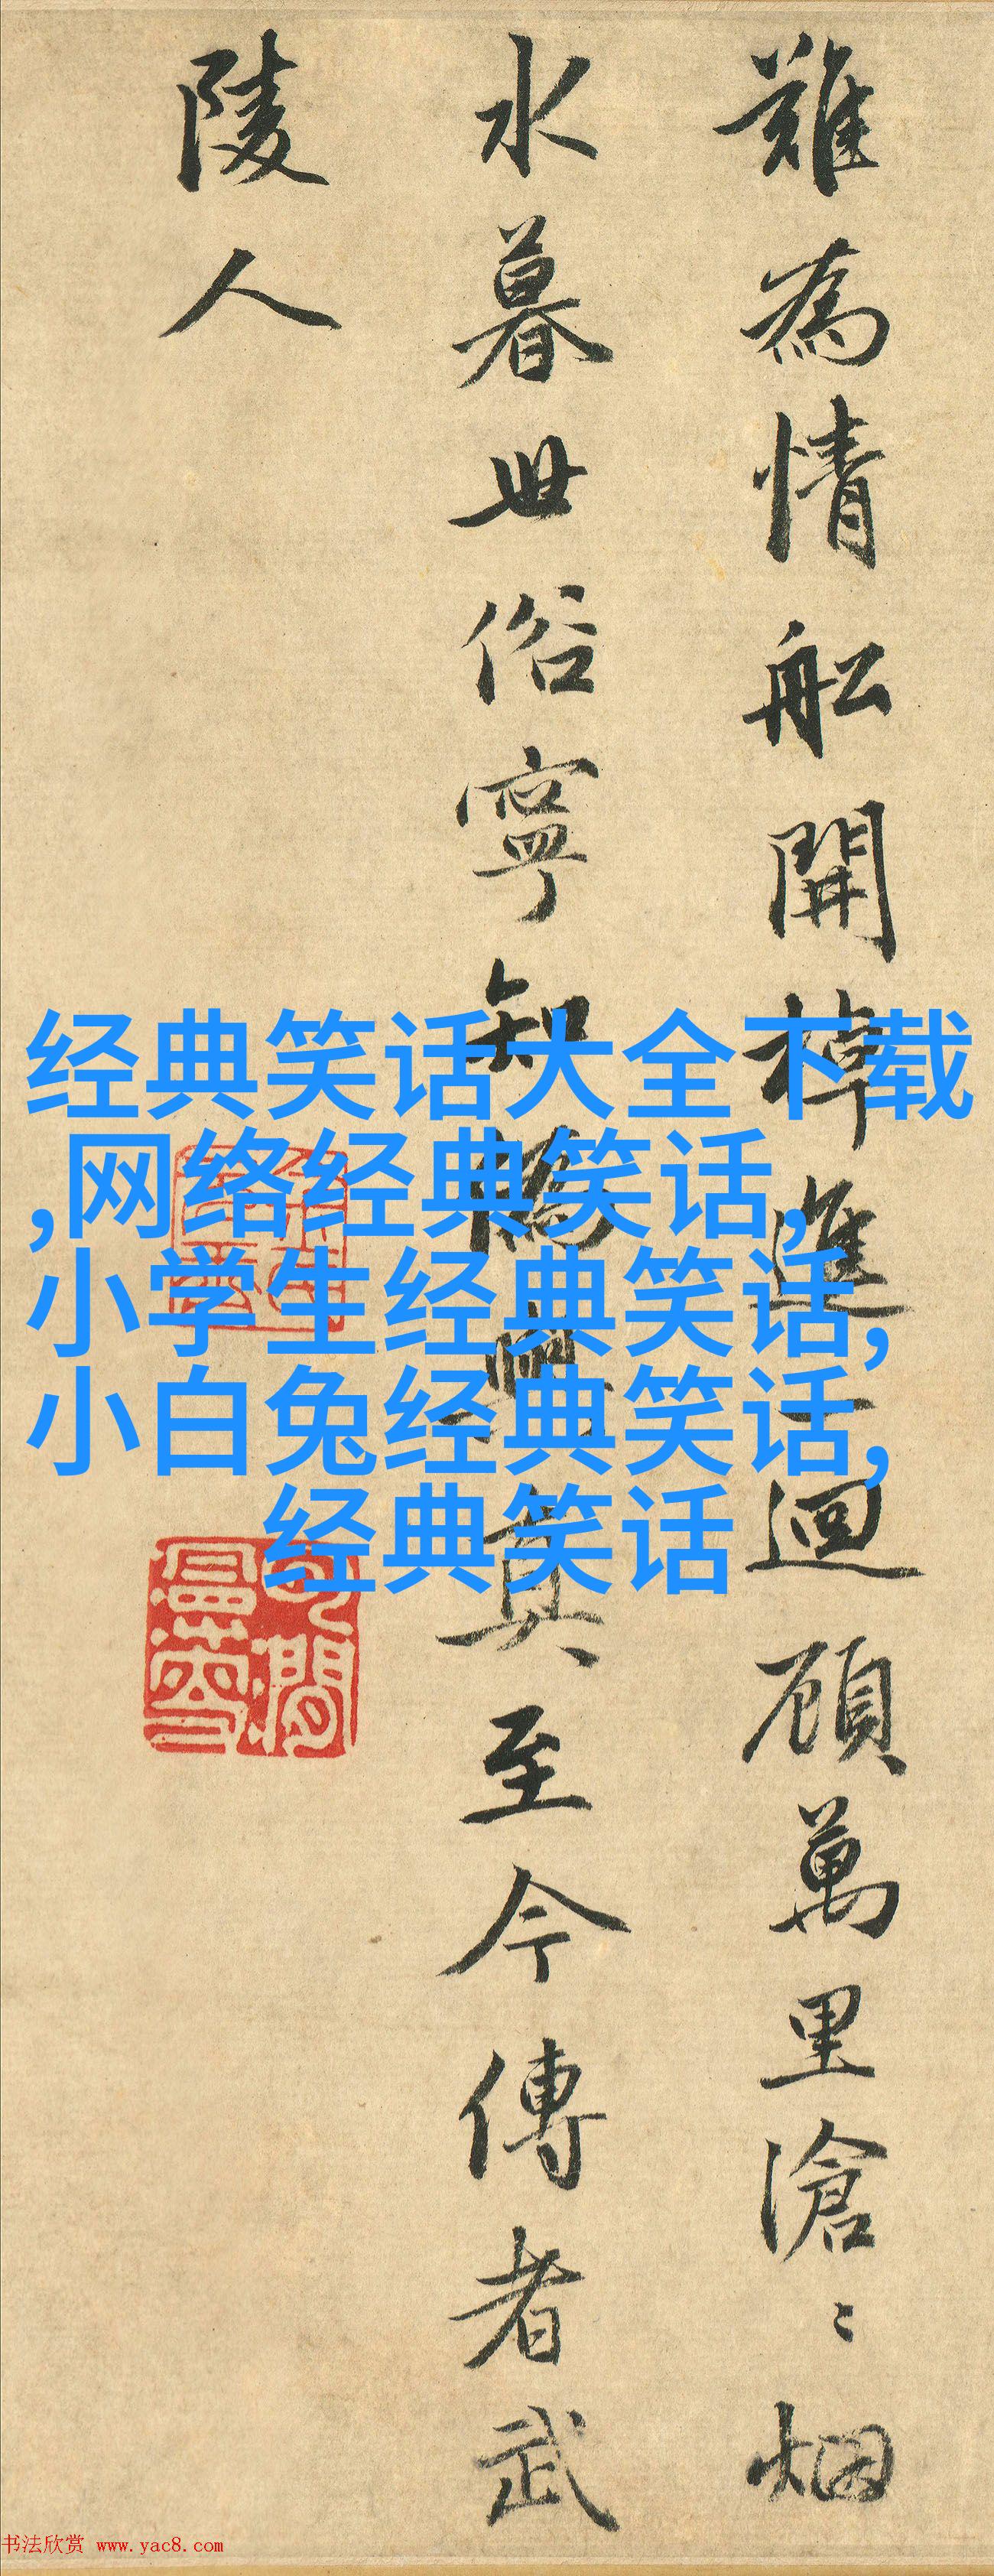 難為情舩開棹進一迴顧萬里滄〻烟
水暮世俗寧知偽與真至今傳者武
陵人
经典笑话大全下载
,网络经典笑话,
小学生经典笑话,
小白兔经典笑话,
经典笑话
书法欣赏 www.yac8.com